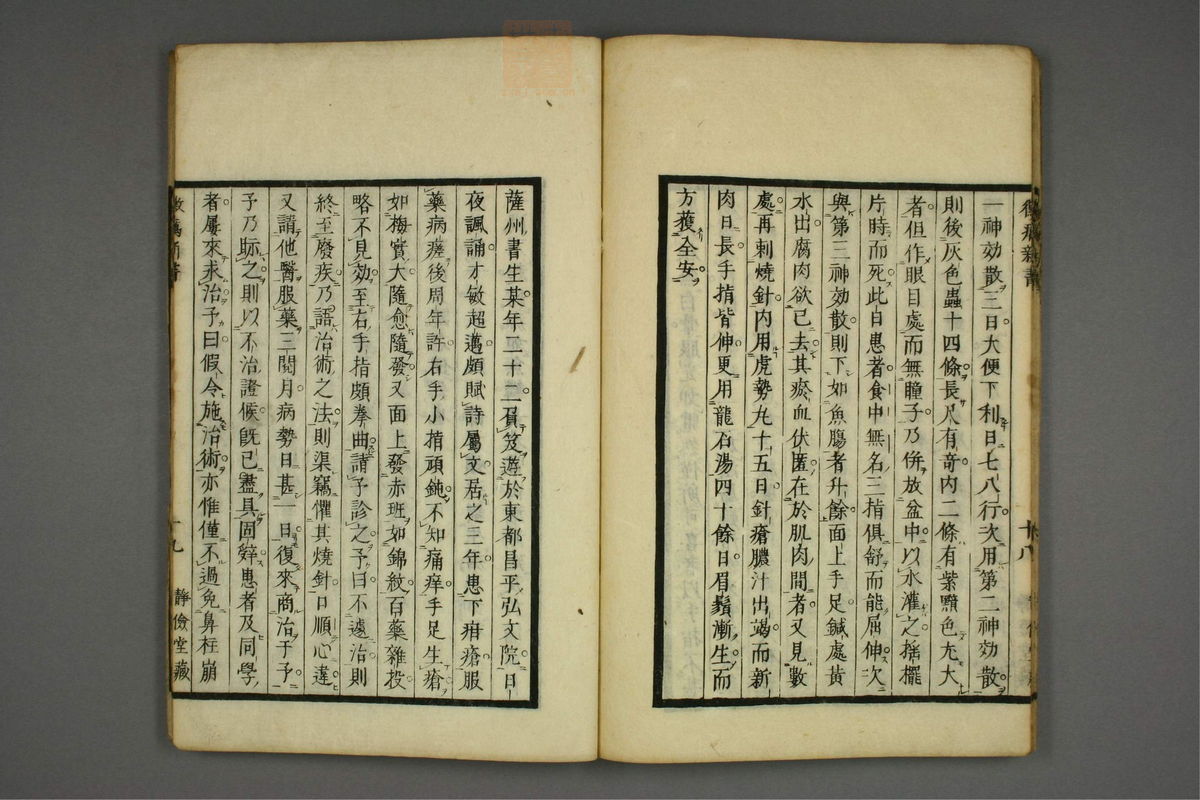 一神効散三日大便下利日七八行次用第二神効散
則後灰色蟲十四條長尺有奇内二條有紫黯色尤大
者但作眼目處而無瞳子乃併放盆中以水灌之揺擺
片時而死此日患者食中無名三指俱舒而能屈伸次
與第三神効散則下如魚膓者升餘面上手足鍼處黄
水出腐肉欲已去其瘀血伏匿在於肌肉間者又見數
處再刺燒針内用虎勢丸十五日針瘡膿汁出竭而新
肉日長手指皆伸更用龍石湯四十餘日眉鬚漸生而
方獲全安
十八
薩州書生某年二十二負笈遊於東都昌平弘文院日
夜諷誦才敏超邁頗賦詩屬文居之三年患下疳瘡服
藥病瘥後周年許右手小指頑鈍不知痛痒手足生瘡
如梅實大隨愈隨發又面上發赤班如錦紋百藥雜投
略不見効至右手指頗拳曲請予診之予曰不遽治則
終至廢疾乃語治術之法則渠竊懼其燒針日順心違
又請他醫服藥三閲月病勢日甚一日復來商治于予
予乃眎之則以不治證候既已盡具固辤患者及同學
者屢來求治予曰假令施治術亦惟僅不過免鼻柱崩
十九
靜儉堂藏